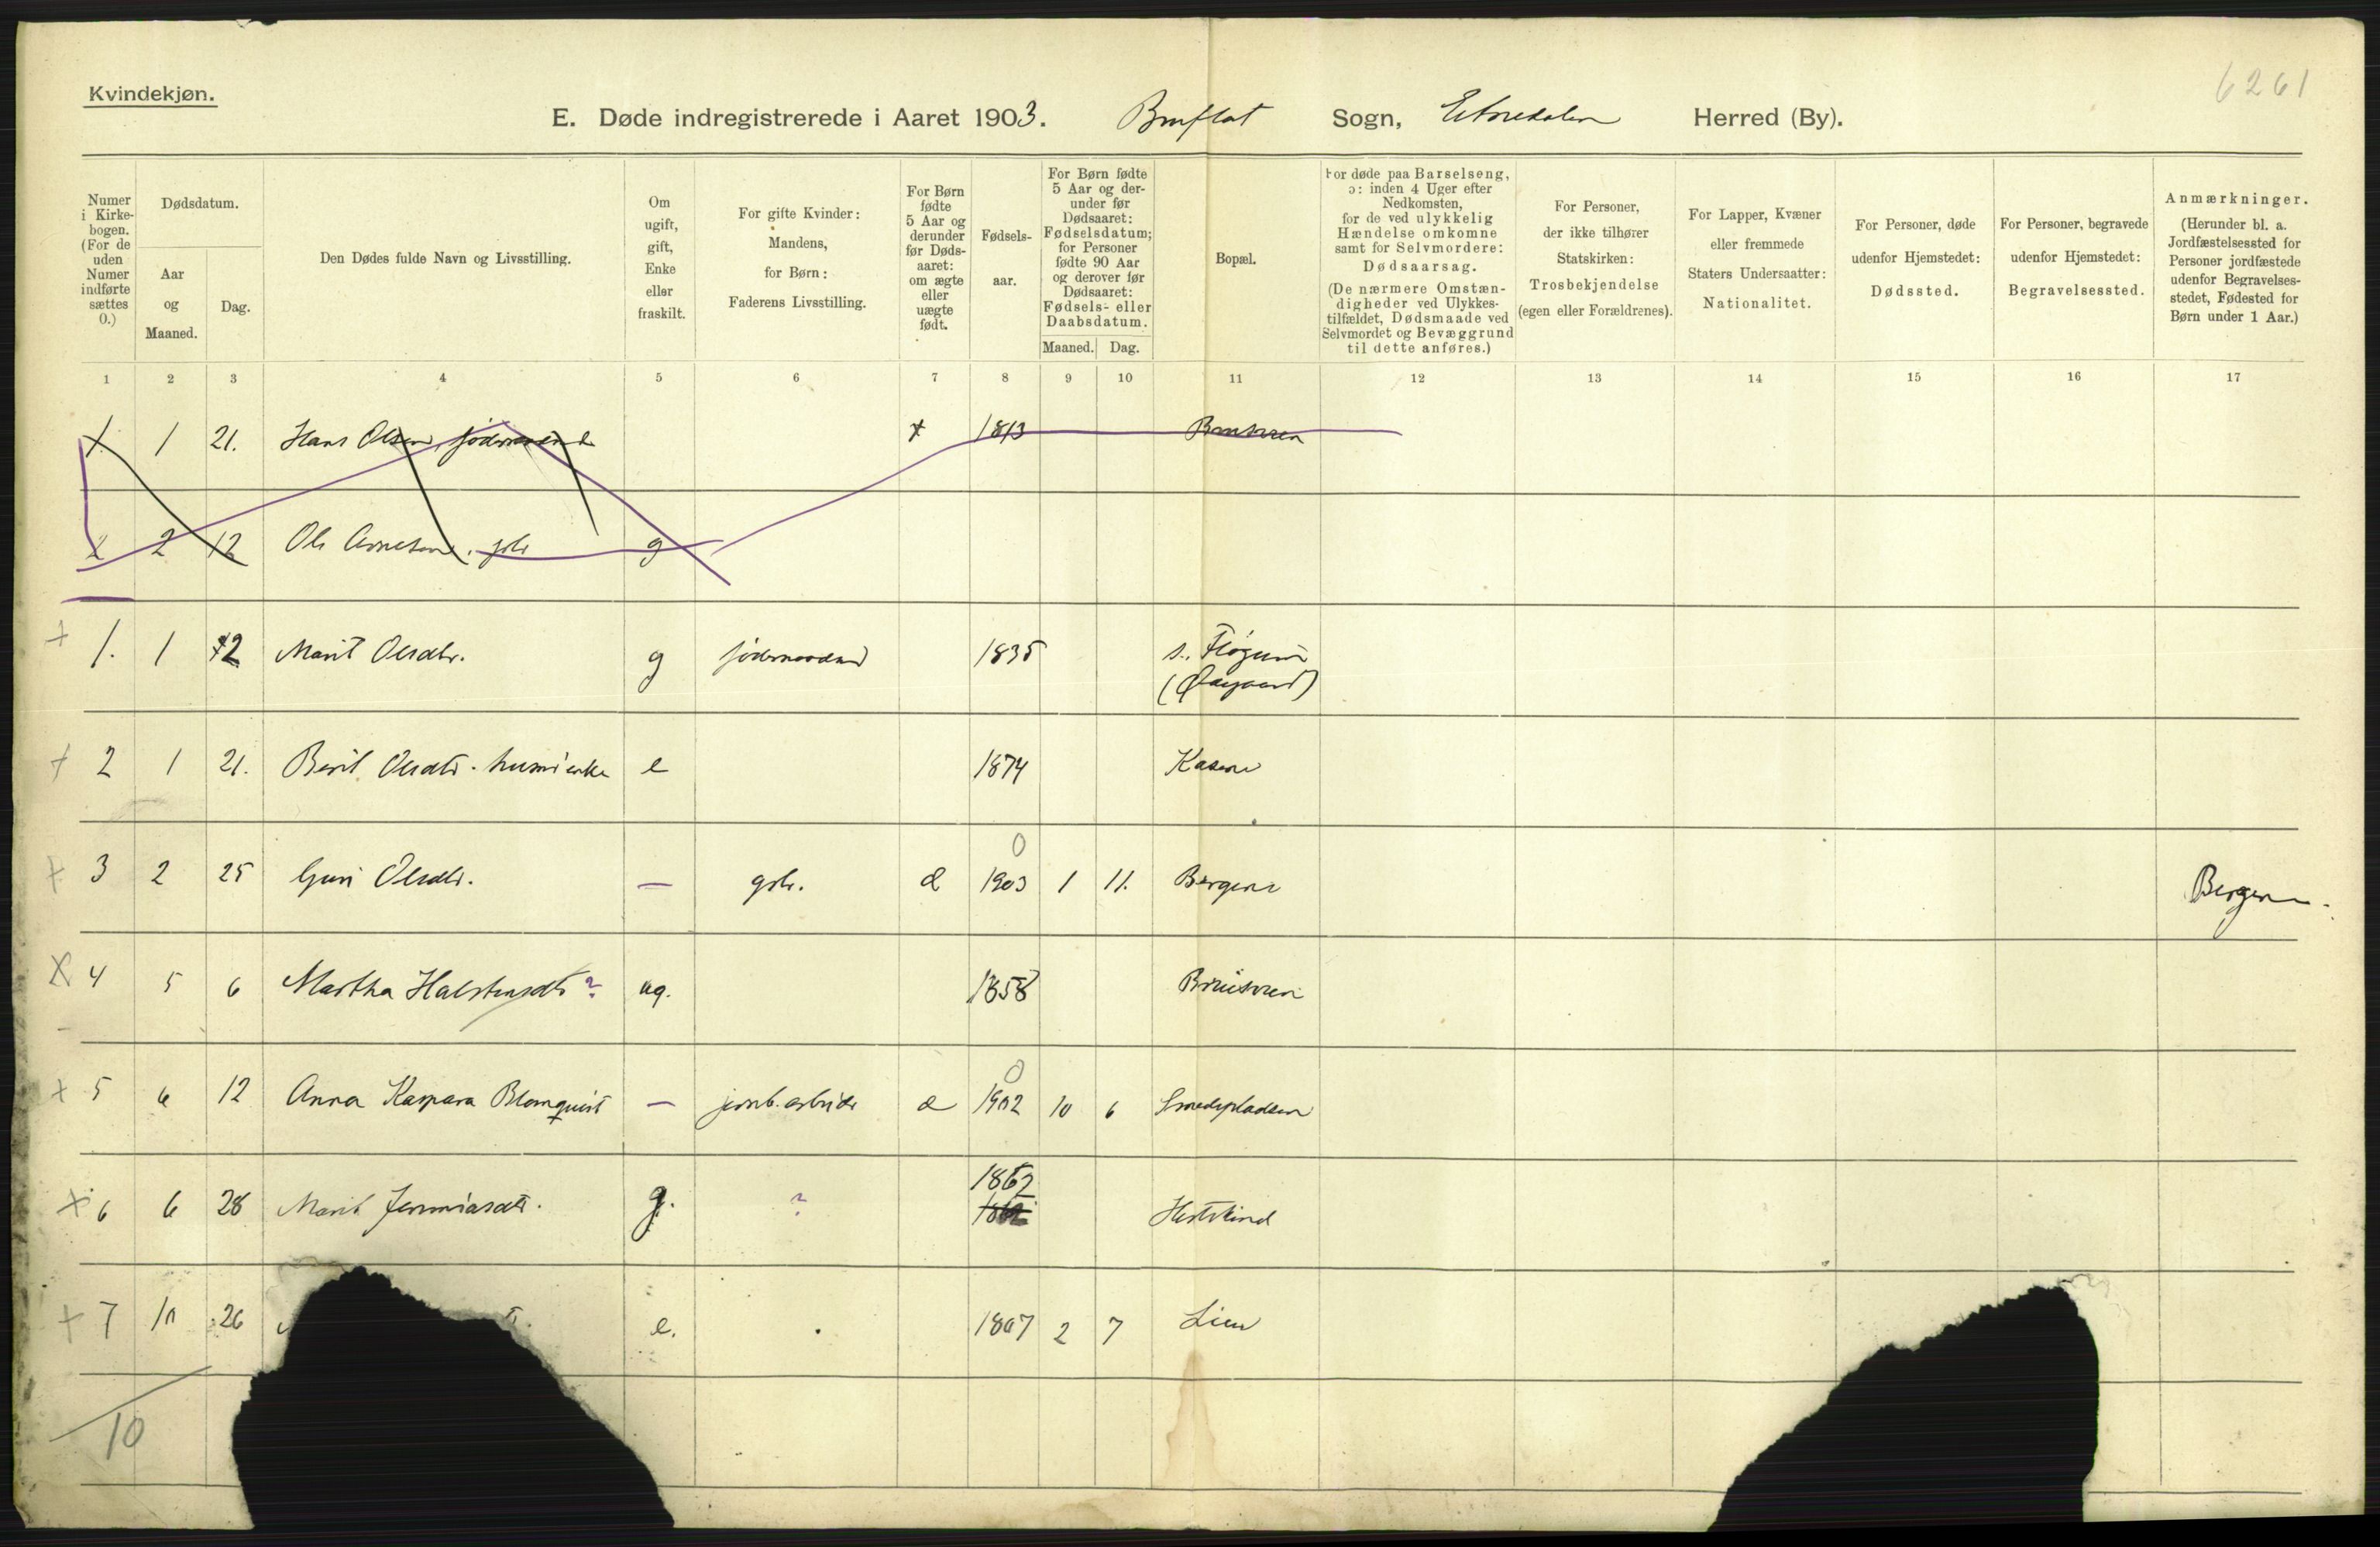 6261
Kvindekjøn.
E. Døde indregistrerede i Aaret 1903. Bruflat Sogn, Etnedalen Herred (By).
Numer i Kirkebogen. (For de uden Numer indførte sættes 0.)
Dødsdatum.
Aar og Maaned.
Dag.
Den Dødes fulde Navn og Livsstilling.
Om ugift, gift, Enke eller fraskilt.
For gifte Kvinder: Mandens, for Børn: Faderens Livsstilling.
For Børn fødte 5 Aar og derunder før Dødsaaret: om ægte eller uægte født.
Fødselsaar.
For Børn fødte 5 Aar og derunder før Dødsaaret: Fødselsdatum; for Personer fødte 90 Aar og derover før Dødsaaret: Fødsels- eller Daabsdatum.
Maaned. Dag.
Bopæl.
For døde paa Barselseng, ɔ: inden 4 Uger efter Nedkomsten, for de ved ulykkelig Hændelse omkomne samt for Selvmordere: Dødsaarsag. (De nærmere Omstændigheder ved Ulykkestilfældet, Dødsmaade ved Selvmordet og Bevæggrund til dette anføres.)
For Personer, der ikke tilhører Statskirken: Trosbekjendelse (egen eller Forældrenes).
For Lapper, Kvæner eller fremmede Staters Undersaatter: Nationalitet.
For Personer, døde udenfor Hjemstedet: Dødssted.
For Personer, begravede udenfor Hjemstedet: Begravelsessted.
Anmærkninger. (Herunder bl. a. Jordfæstelsessted for Personer jordfæstede udenfor Begravelsesstedet, Fødested for Børn under 1 Aar.)
1 2 3 4 5 6 7 8 9 10 11 12 13 14 15 16 17
1 1 21. Hans Olsen, 1813
2 2 12 Ole Arnesen. g
1. 1 12 Marit Olsdtr. g 1835
2 1 21. Berit Olsdtr. e 1874
0
3 2 25 Guri Olsdtr. — grbr. 1903 1 11. Bergene Bergene.
4 5 6 Martha Halstensdtr ? ug. 1858
0
5 6 12 Anna Kaspara Blomquist — jernb.arbeider 1902 10 6 Smedspladsen
6 6 28 Marit g. ? 1862
7 10 26 e. 1807 2 7 Lien
10